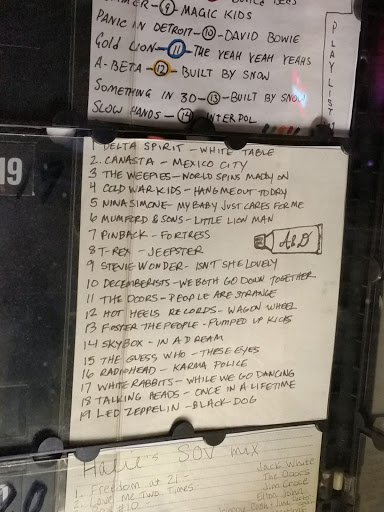 MER - 9 - MAGIC KIDS
PANIC IN DETROIT - 10 - DAVID BOWIE
GOLD LION - 11 - THE YEAH YEAH YEAHS
A-BETA - 12 - BUILT BY SNOW
SOMETHING IN 3D - 13 - BUILT BY SNOW
SLOW HANDS - 14 - INTERPOL
PLAYLIST
19
1 DELTA SPIRIT - WHITE TABLE
2. CANASTA - MEXICO CITY
3 THE WEEPIES - WORLD SPINS MADLY ON
4 COLD WAR KIDS - HANG ME OUT TO DRY
5 NINA SIMONE - MY BABY JUST CARES FOR ME
6 MUMFORD & SONS - LITTLE LION MAN
7 PINBACK - FORTRESS
8 T-REX - JEEPSTER
A&D
9 STEVIE WONDER - ISN'T SHE LOVELY
10 DECEMBERISTS - WE BOTH GO DOWN TOGETHER
11 THE DOORS - PEOPLE ARE STRANGE
12 HOT HEELS RECORDS - WAGON WHEEL
13 FOSTER THE PEOPLE - PUMPED UP KICKS
14 SKYBOX - IN A DREAM
15 THE GUESS WHO - THESE EYES
16 RADIOHEAD - KARMA POLICE
17 WHITE RABBITS - WHILE WE GO DANCING
18 TALKING HEADS - ONCE IN A LIFETIME
19 LED ZEPPELIN - BLACK DOG
SOV mix
1. Freedom at 21 - Jack White
Love Me Two Times - The Doors
#10 - Jim Croce
Elton John